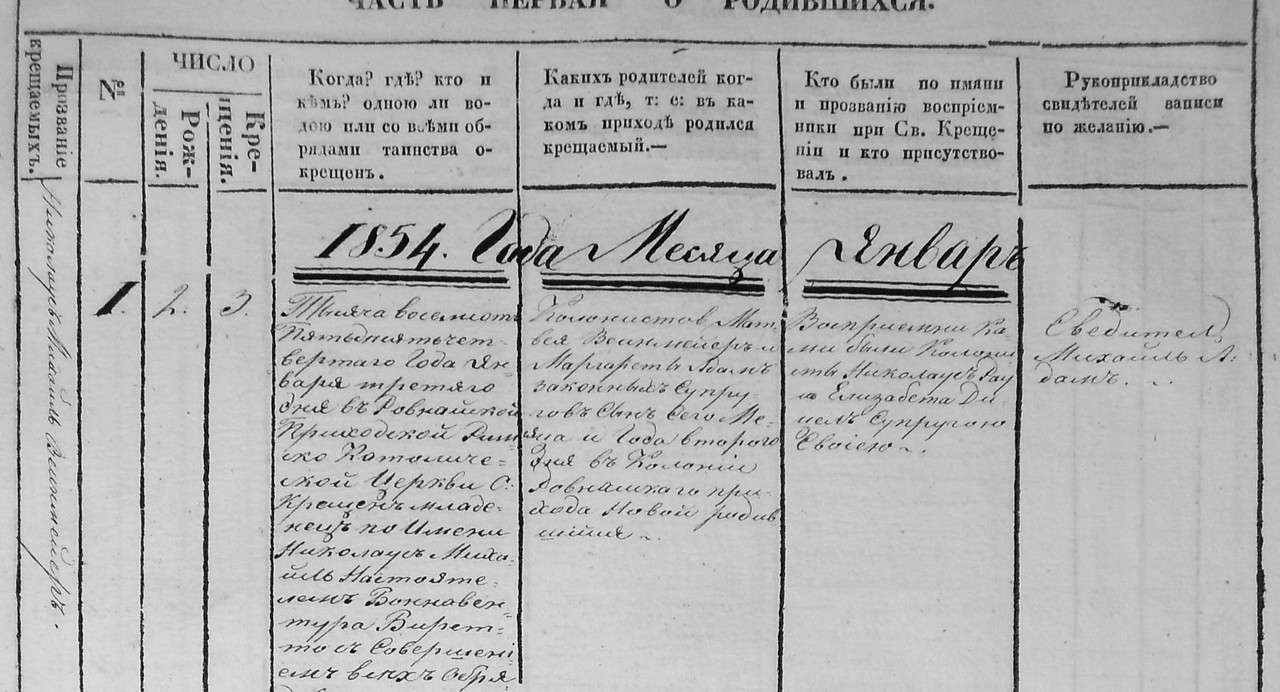 ЧАСТЬ ПЕРВАЯ О РОДИВШИХСЯ.
Прозваніе
крещаемыхъ.
№
ЧИСЛО
Рож-
денія.
Кре-
щенія.
Когда? гдѣ? кто и
кѣмъ? одною ли во-
дою или со всѣми об-
рядами таинства о-
крещенъ.
Какихъ родителей ког-
да и гдѣ, т: е: въ ка-
комъ приходѣ родился
крещаемый.—
Кто были по имяни
и прозванію воспріем-
ники при Св. Креще-
ніи и кто присутство-
валъ.
Рукоприкладство
свидѣтелей записи
по желанію.—
1854. Года Месяца Январъ
Михаилъ Веинмейеръ.
1.
2.
3.
Тысяча восемсотъ
Пятьдцятьчет-
вертаго Года Ян-
варя третяго
дня въ Ровнайской
Приходской Рим-
ско Католиче-
ской Церкви О:
Крещенъ младе-
нецъ по Имени
Николаусъ Миха-
илъ Настояте-
лемъ
тура
то съ Совершені
емъ всехъ Обря
Колонистовъ Мат-
вея Веинмейеръ и
Маргареты Адамъ
законныхъ Супру-
говъ Сынъ Сего Ме-
сяца и Года второго
дня въ Колоніи
Ровнайскаго при-
хода Новой родив
шійся
Восприемни Ка-
ми были Колони-
сты Николаусъ Рау
и Елизабета Ди-
мель Супругою
Евоіею
Сведитель
Михаилъ А-
дамъ.